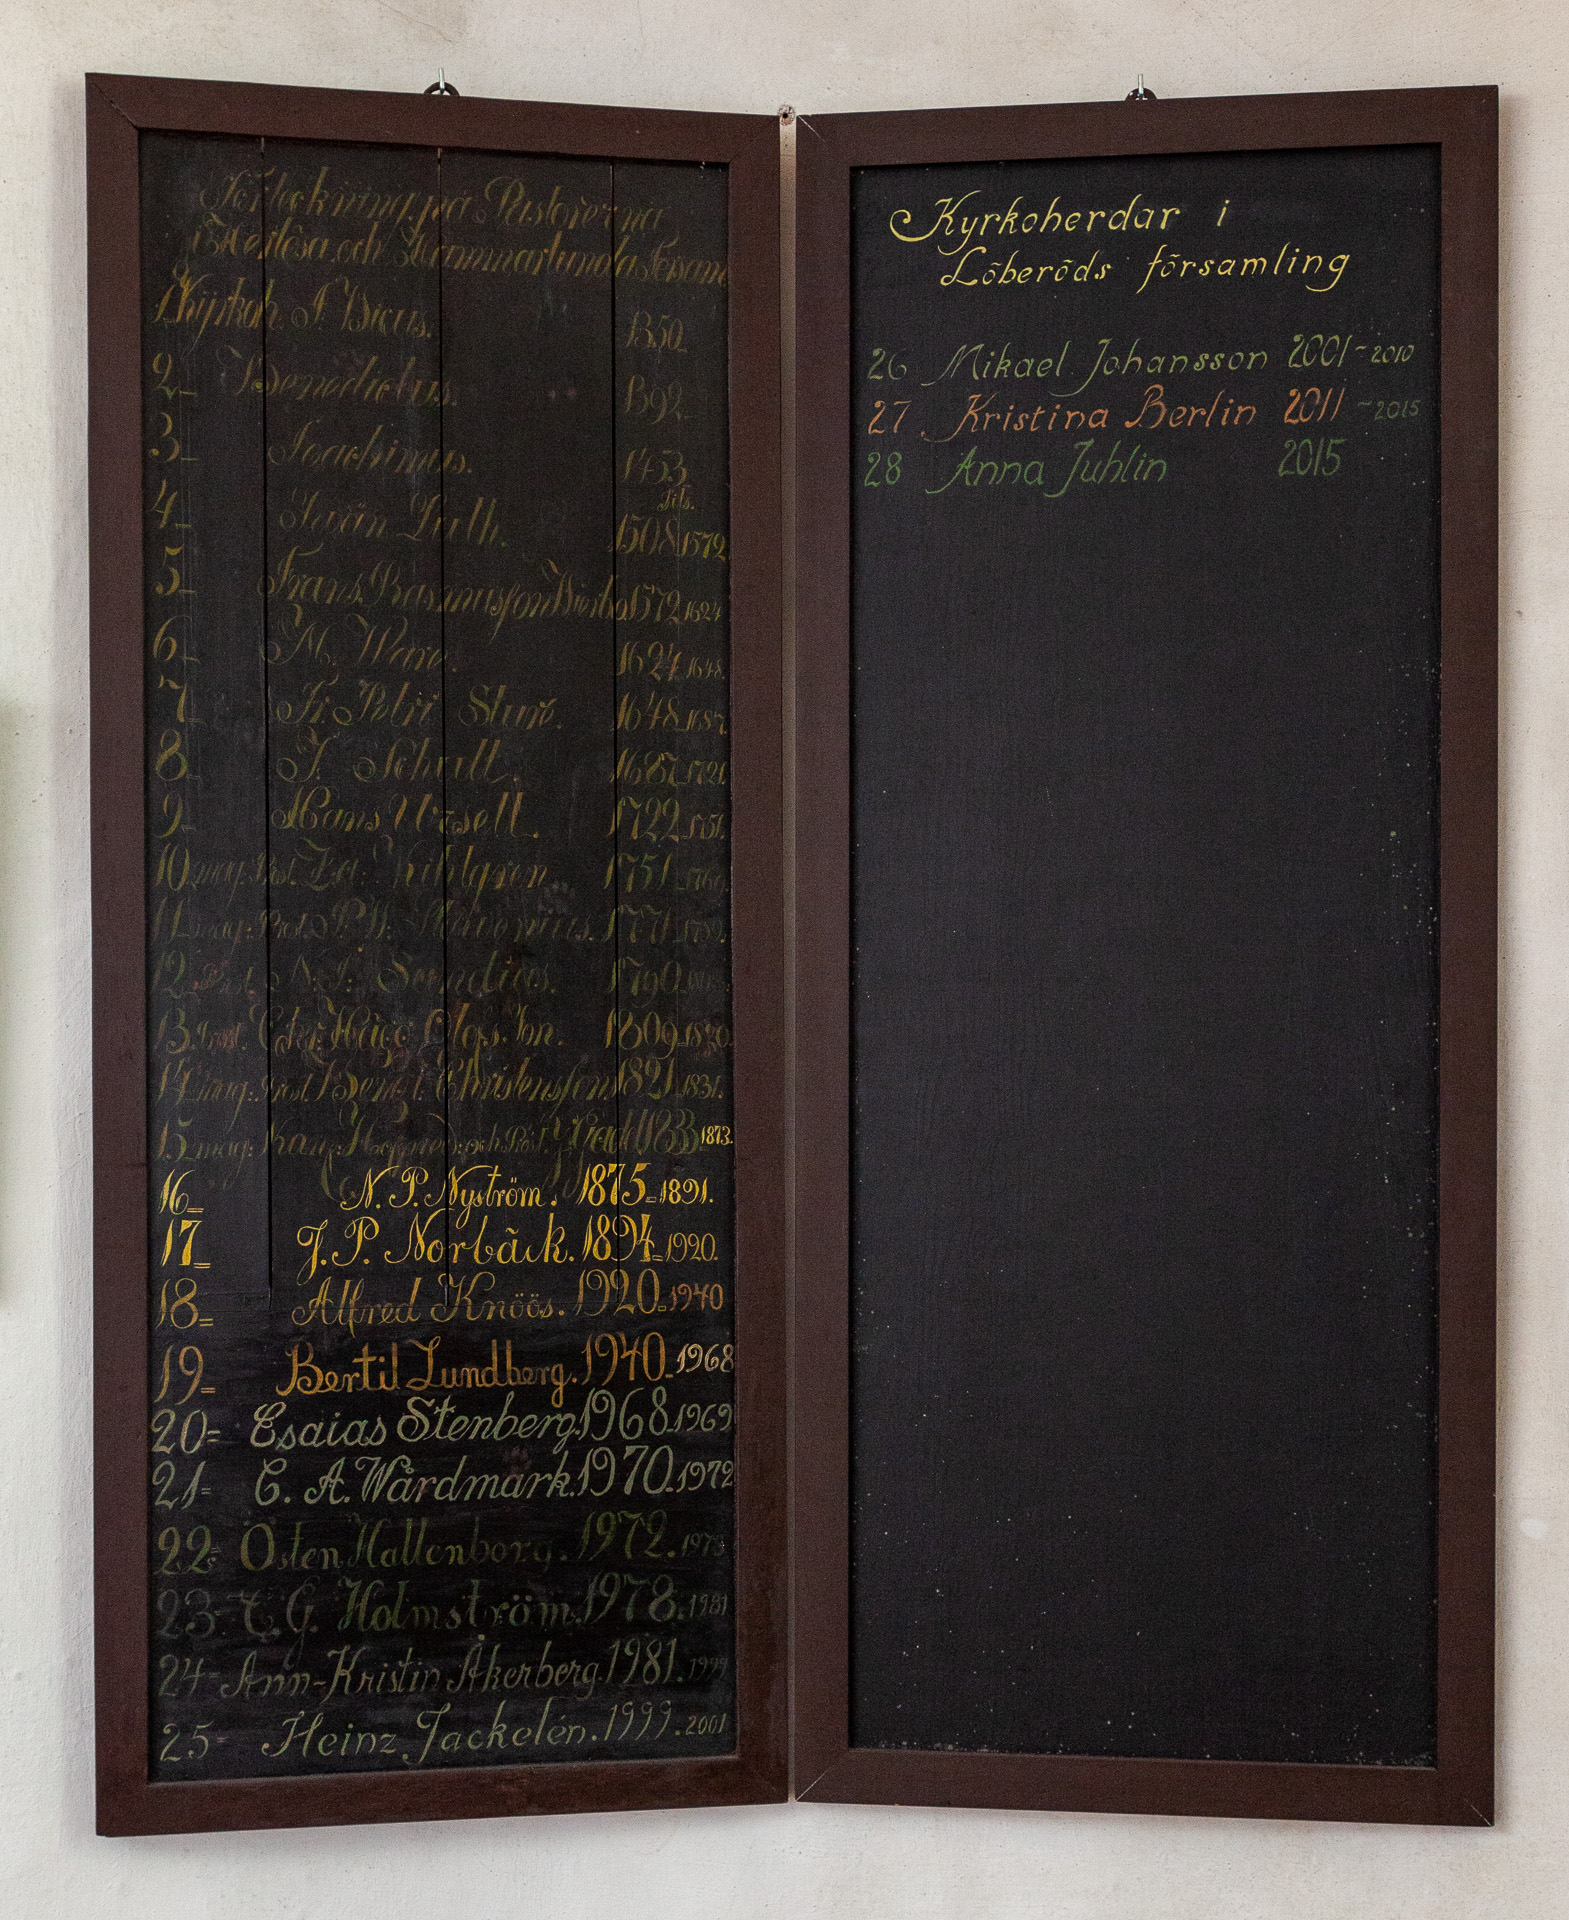 Förteckning på Pastorerna
i och Hammarlunda Försam
1 Kyrkoh. J. 1350
2 Benedictus. 1392
3 Joachimus. 1453
4 Luth. 1508 1572
5 Frans Rasmusson 1572 1624
6 M. Ware. 1624 1648
7 Fr. Petri Sture. 1648 1687
8 J. Schult. 1687 1721
9 Hans Ursell. 1722 1751
10 mag. Prost. Kihlgren 1751
11 mag. Prost. P. 1771
12 Prost. N. J. 1790
13 Prost. 1809 1820
14 mag. Prost. Bengt Christensson 1821 1831.
15 mag. och Prost. 1833 1873.
16 N. P. Nyström. 1875 1891.
17 J. P. Norbäck. 1894 1920.
18 Alfred Knöös. 1920 1940
19 Bertil Lundberg. 1940 1968
20 Esaias Stenberg. 1968 1969
21 C. A. Wårdmark. 1970. 1972
22 Östen Hallenborg. 1972.
23 C. G. Holmström. 1978. 1981
24 Ann-Kristin Åkerberg. 1981. 1999
25 Heinz Jackelén. 1999. 2001
Kyrkoherdar i
Löberöds församling
26 Mikael Johansson 2001 - 2010
27 Kristina Berlin 2011 - 2015
28 Anna Juhlin 2015